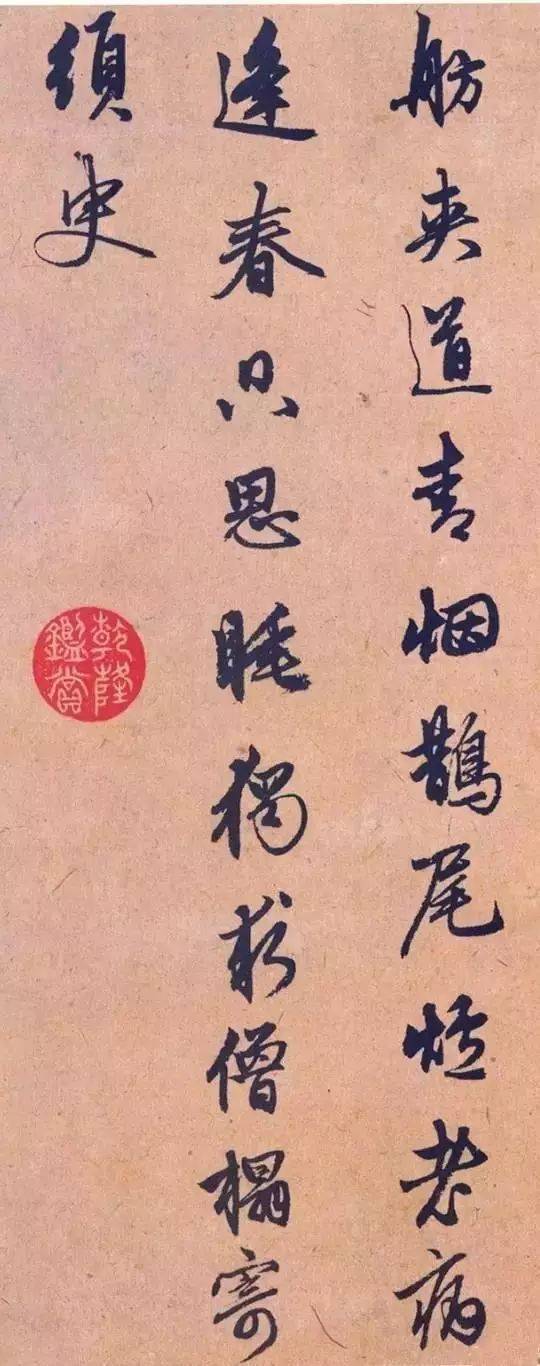 舫夹道青烟鹊尾炉老病
逢春只思睡独求僧榻寄
须臾
乾隆
鑑賞